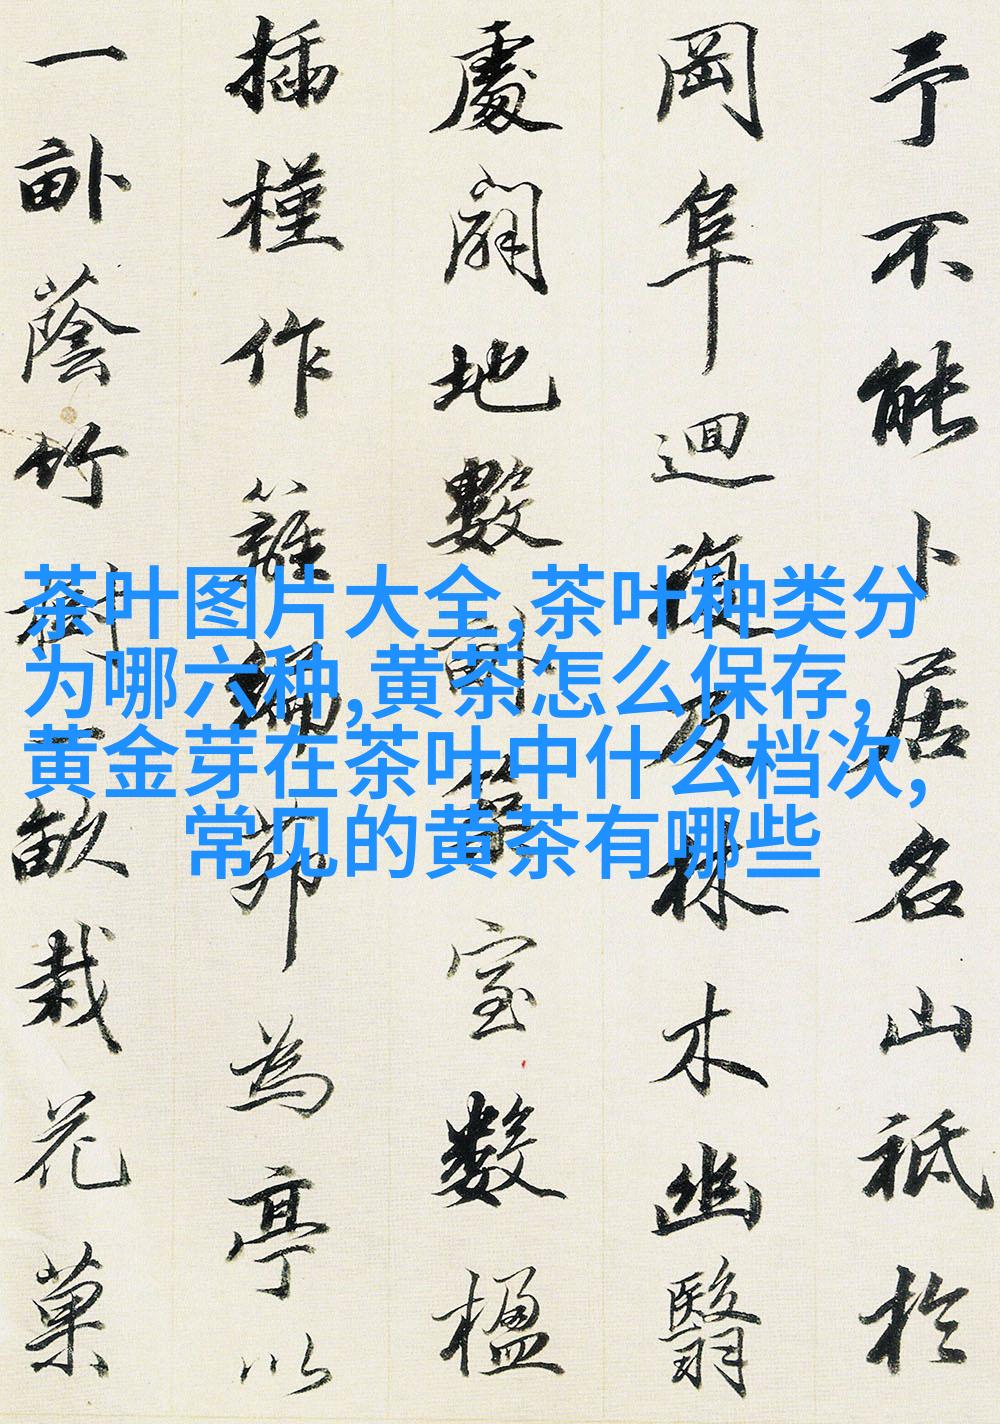 予不能卜居名山祗於
岡阜迴複及林木幽翳
處闢地數畝築室數楹
插槿作籬編茆為亭以
一畝蔭竹樹一畝栽花菓
茶叶图片大全,茶叶种类分
为哪六种,黄茶怎么保存,
黄金芽在茶叶中什么档次,
常见的黄茶有哪些